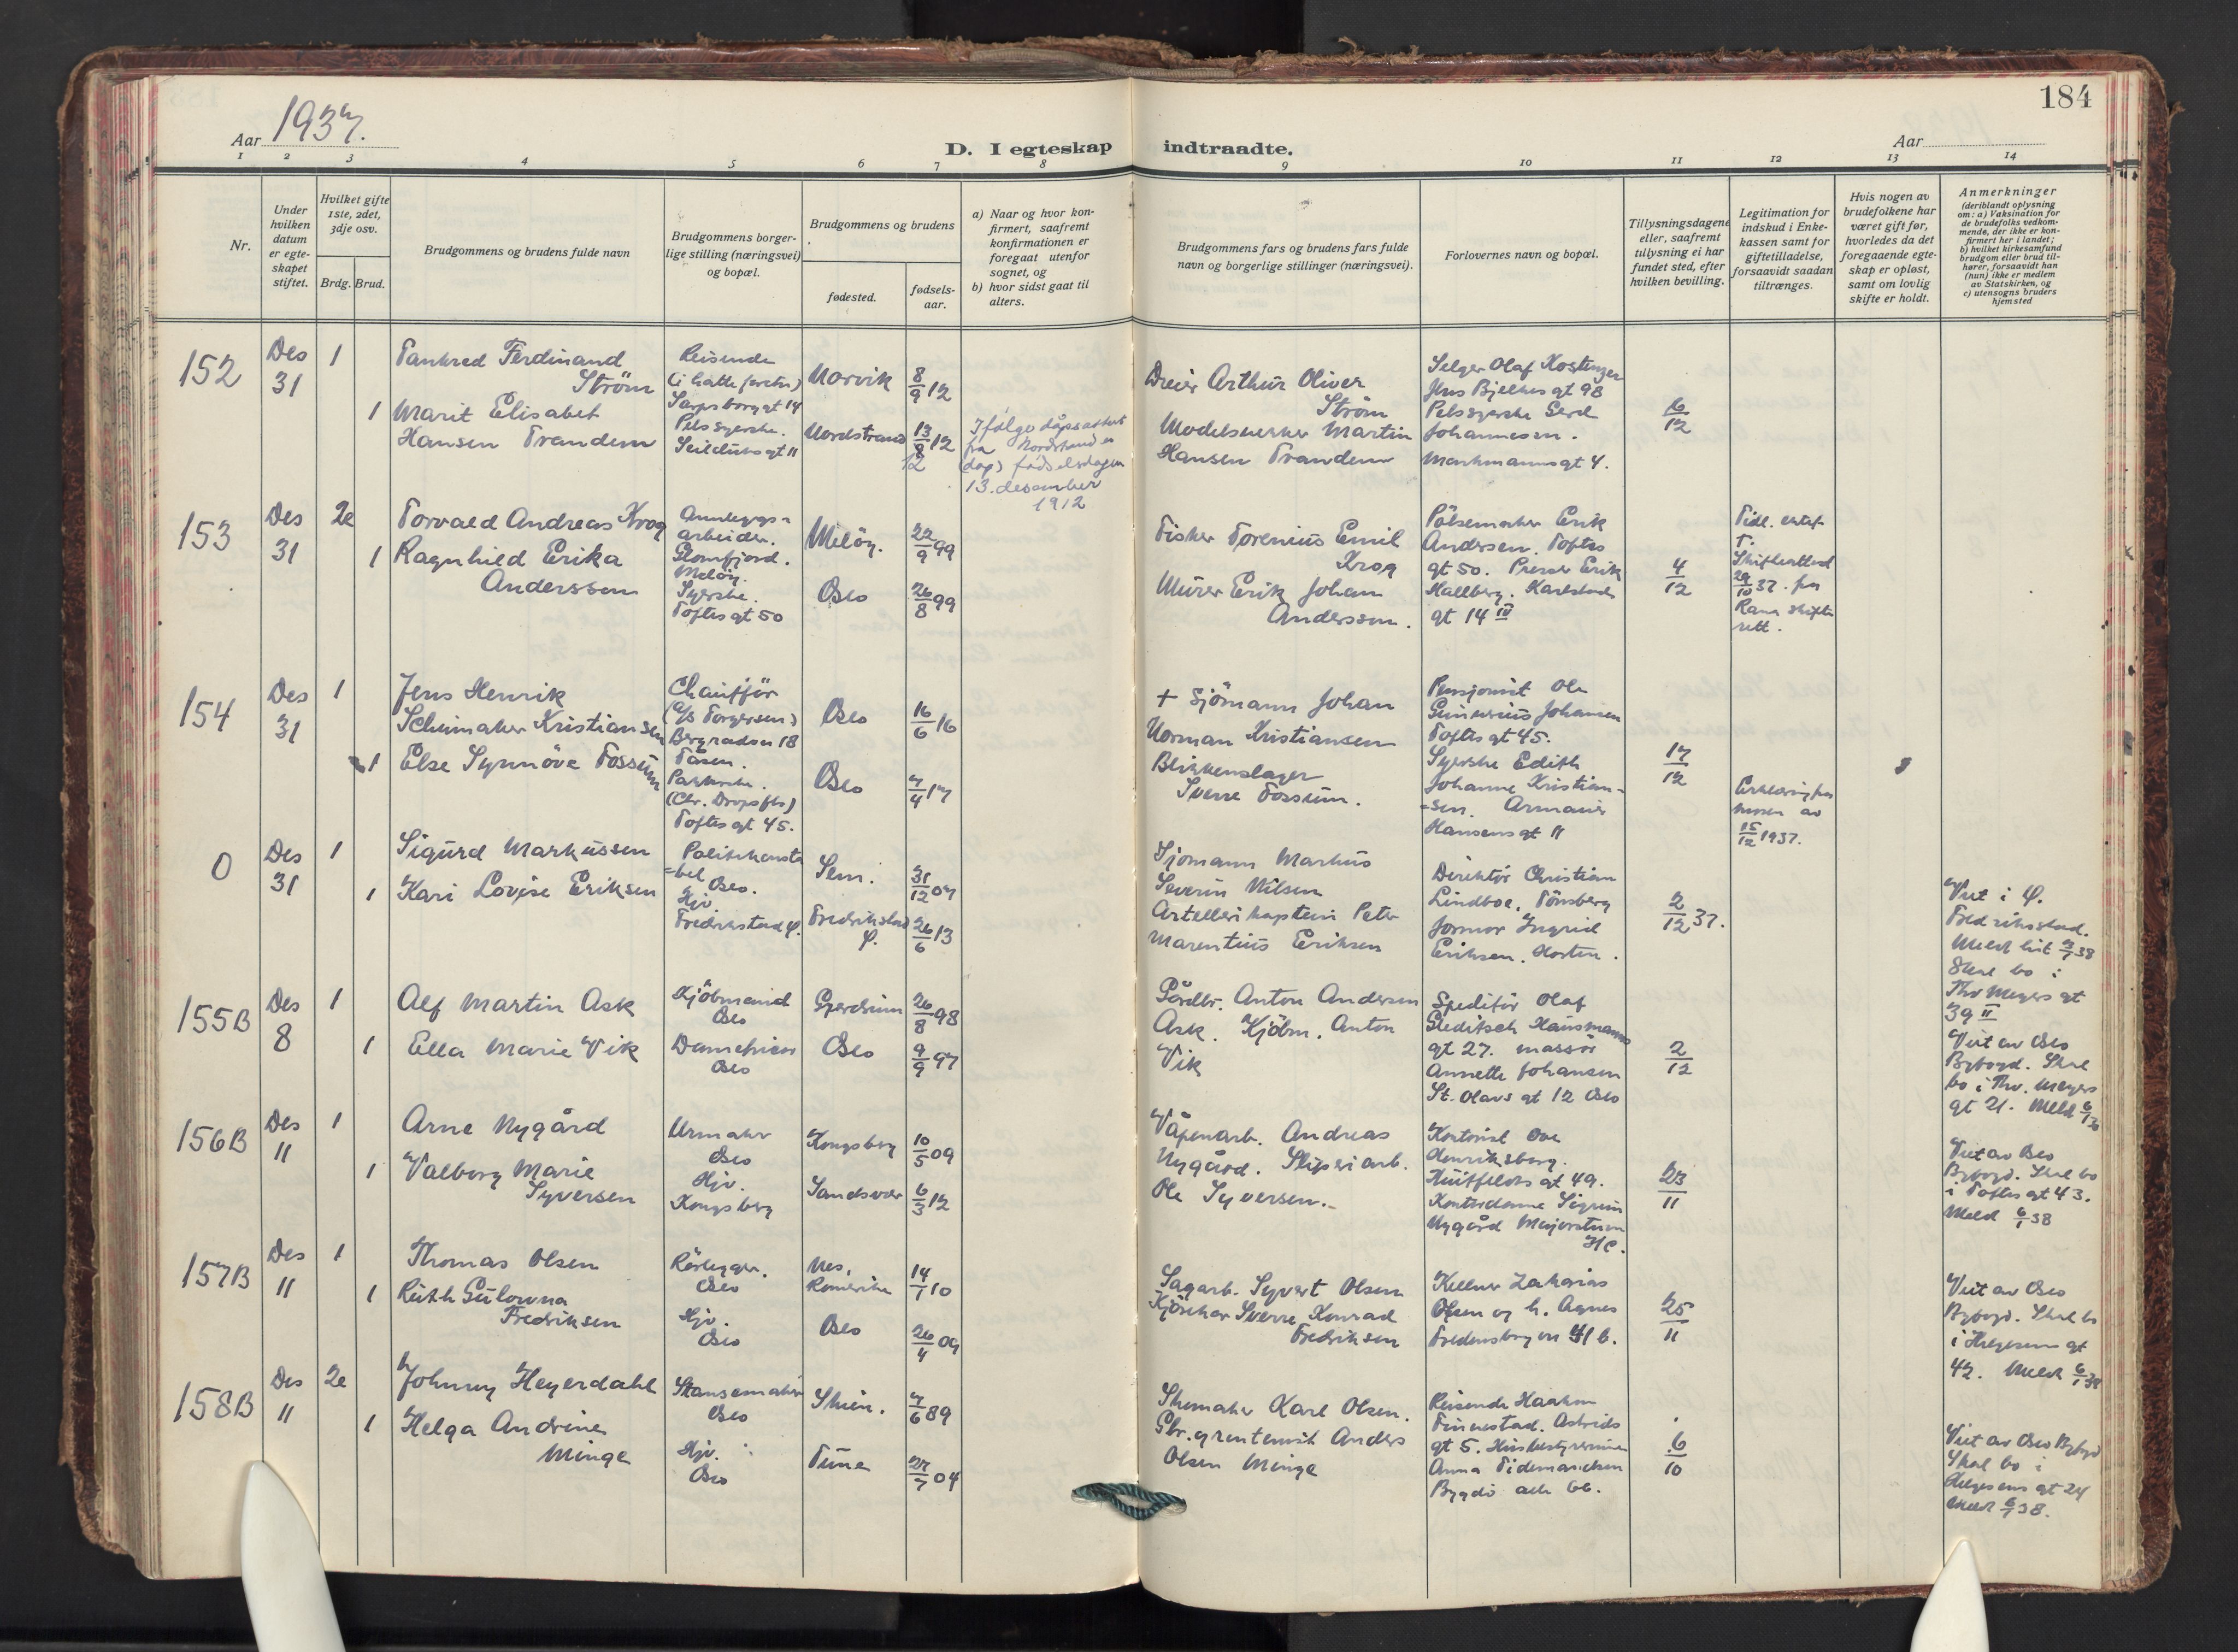 184
Aar 1937.
D. I egteskap indtraadte.
Aar
1 2 3 4 5 6 7 8 9 10 11 12 13 14
Nr.
Under hvilken datum er egteskapet stiftet.
Hvilket gifte 1ste, 2det, 3dje osv.
Brdg. Brud.
Brudgommens og brudens fulde navn
Brudgommens borger-
lige stilling (næringsvei)
og bopæl.
Brudgommens og brudens
fødested.
fødsels-
aar.
a) Naar og hvor kon-
firmert, saafremt
konfirmationen er
foregaat utenfor
sognet, og
b) hvor sidst gaat til
alters.
Brudgommens fars og brudens fars fulde
navn og borgerlige stillinger (næringsvei).
Forlovernes navn og bopæl.
Tillysningsdagene
eller, saafremt
tullysning ei har
fundet sted, efter
hvilken bevilling.
Legitimation for
indskud i Enke-
kassen samt for
giftetilladelse,
forsaavidt saadan
tiltrænges.
Hvis nogen av
brudefolkene har
været gift før,
hvorledes da det
foregaaende egte-
skap er opløst,
samt om lovlig
skifte er holdt.
Anmerkninger
(deriblandt oplysning
om: a) Vaksination for
de brudefolks vedkom-
mende, der ikke er kon-
firmert her i landet;
b) hvilket kirkesamfund
brudgom eller brud til-
hører, forsaavidt han
(hun) ikke er medlem
av Statskirken, og
c) utensogns bruders
hjemsted
152
Des
31
1
Tankred Ferdinand
Ström
Reisende
Sarpsborggt 14
Narvik
8/9 12
1
Marit Elisabet
Hansen Trandem
Pelssyerske.
Seilduksgt 11
Nordstrand
13/8 12
12
Ifølge dåpsattest
fra Nordstrand er
(dåp) fødselsdagen
13. desember
1912
Dreier Arthur Oliver
Ström
Modelsnekker Martin
Hansen Trandem
Selger Olaf
Jens Bjelkes gt 9B
Pelssyerske Gerd
Johannesen.
Markmannsgt 4.
6/12
153
Des
31
2e
Torvald Andreas Krog
Anleggs-
arbeider.
Glomfjord.
Melöy.
Melöy.
22/9 99
1
Ragnhild Erika
Anderssen
Syerske.
Toftes gt 50
Oslo
26/8 99
Fisker Torenius Emil
Krog
Murer Erik Johan
Anderssen.
Pölsemaker Erik
Andersen. Toftes
gt 50. Presser Erik
Hallberg. Karlstads
gt 14 IV
4/12
Tidl. ektef.
†.
Skifteattest
29/10 37. fra
Rana skifte
rett.
154
Des
31
1
Jens Henrik
Schumaker Kristiansen
Chaufför
(A/s Torgersen)
Bergrådvn 18
Tåsen.
Oslo
16/6 16
1
Else Synnöve Fossum
Pakkerske.
(Chr. Drops fbr)
Toftes gt 45.
Oslo
7/4 17
+ Sjömann Johan
Norman Kristiansen
Blikkenslager
Sverre Fossum.
Pensjonist Ole
Gunerius Johansen
Toftes gt 45.
Syerske Edith
Johanne Kristian-
-sen. Armauer
Hansens gt 11
17/12
Erklæring fra
av
15/12 1937.
0
Des
31
1
Sigurd Markussen
Politikonsta
-bel
Oslo.
Sem.
31/12 07
1
Kari Lovise Eriksen
Hjv.
Fredrikstad
Fredrikstad
26/6 13
Sjömann Markus
Severin Nilsen
Artillerikaptein Peter
Marentius Eriksen
Direktör Christian
Lindboe, Tönsberg
Jormor Ingrid
Eriksen. Horten.
2/12 37.
Viet i
Fredrikstad.
Meldt hit
Skal bo i
Thv Meyers gt
39 II
155B
Des
8
1
Alf Martin Ask
Kjöbmand
Oslo
Gjerdrum
26/8 98
1
Ella Marie Vik
Oslo
Oslo
9/9 97
Gårdbr. Anton Andersen
Ask. Kjöbm. Anton
Vik
Speditör Olaf
Gleditsch Hausmanns
gt 27. massör
Annette Johansen
St. Olavs gt 12 Oslo
2/12
Viet av Oslo
Byfogd. Skal
bo i Thv. Meyers
gt 21. Meldt
156B
Des
11
1
Arne Nygård
Urmaker
Oslo
Kongsberg
10/5 09
1
Valborg Marie
Syversen
Hjv.
Kongsberg
Sandsvær
6/3 12
Våpenarb. Andreas
Nygård. Sliperiarb.
Ole Syversen.
Kontorist Ove
Henriksberg.
Huitfeldts gt 49.
Kontordame Sigrun
Nygård Majorstuen
23/11
Viet av Oslo
Byfogd. Skal bo
i Toftes gt 43.
Meldt 6/1 38
157B
Des
11
1
Thomas Olsen
Rörlegger.
Oslo
Nes,
Romerike
14/1 10
1
Ruth Gulovna
Fredriksen
Hjv.
Oslo
Oslo
26/4 09
Sagarb. Syvert Olsen
Sverre Konrad
Fredriksen
Kelner Zakarias
Olsen og h. Agnes
Fredensborgvn 41 b.
25/11
Viet av Oslo
Byfogd. Skal bo
i Helgesens gt
42. Meldt 6/1 38
158B
Des
11
2e
Johnny Heyerdahl
Stansemaker
Oslo
Skien.
7/6 89
1
Helga Andrine
Minge
Hjv.
Oslo
Tune
27/7 04
Skomaker Karl Olsen.
Gbr. Anders
Olsen Minge
Reisende Haakon
Finnestad. Astrids
gt 5. Husbestyrerinne
Anna Tidemandsen
Bygdö alle 66.
6/10
Viet av Oslo Byfogd
Skal bo i
Helgesens gt 24
Meldt 6/1 38.